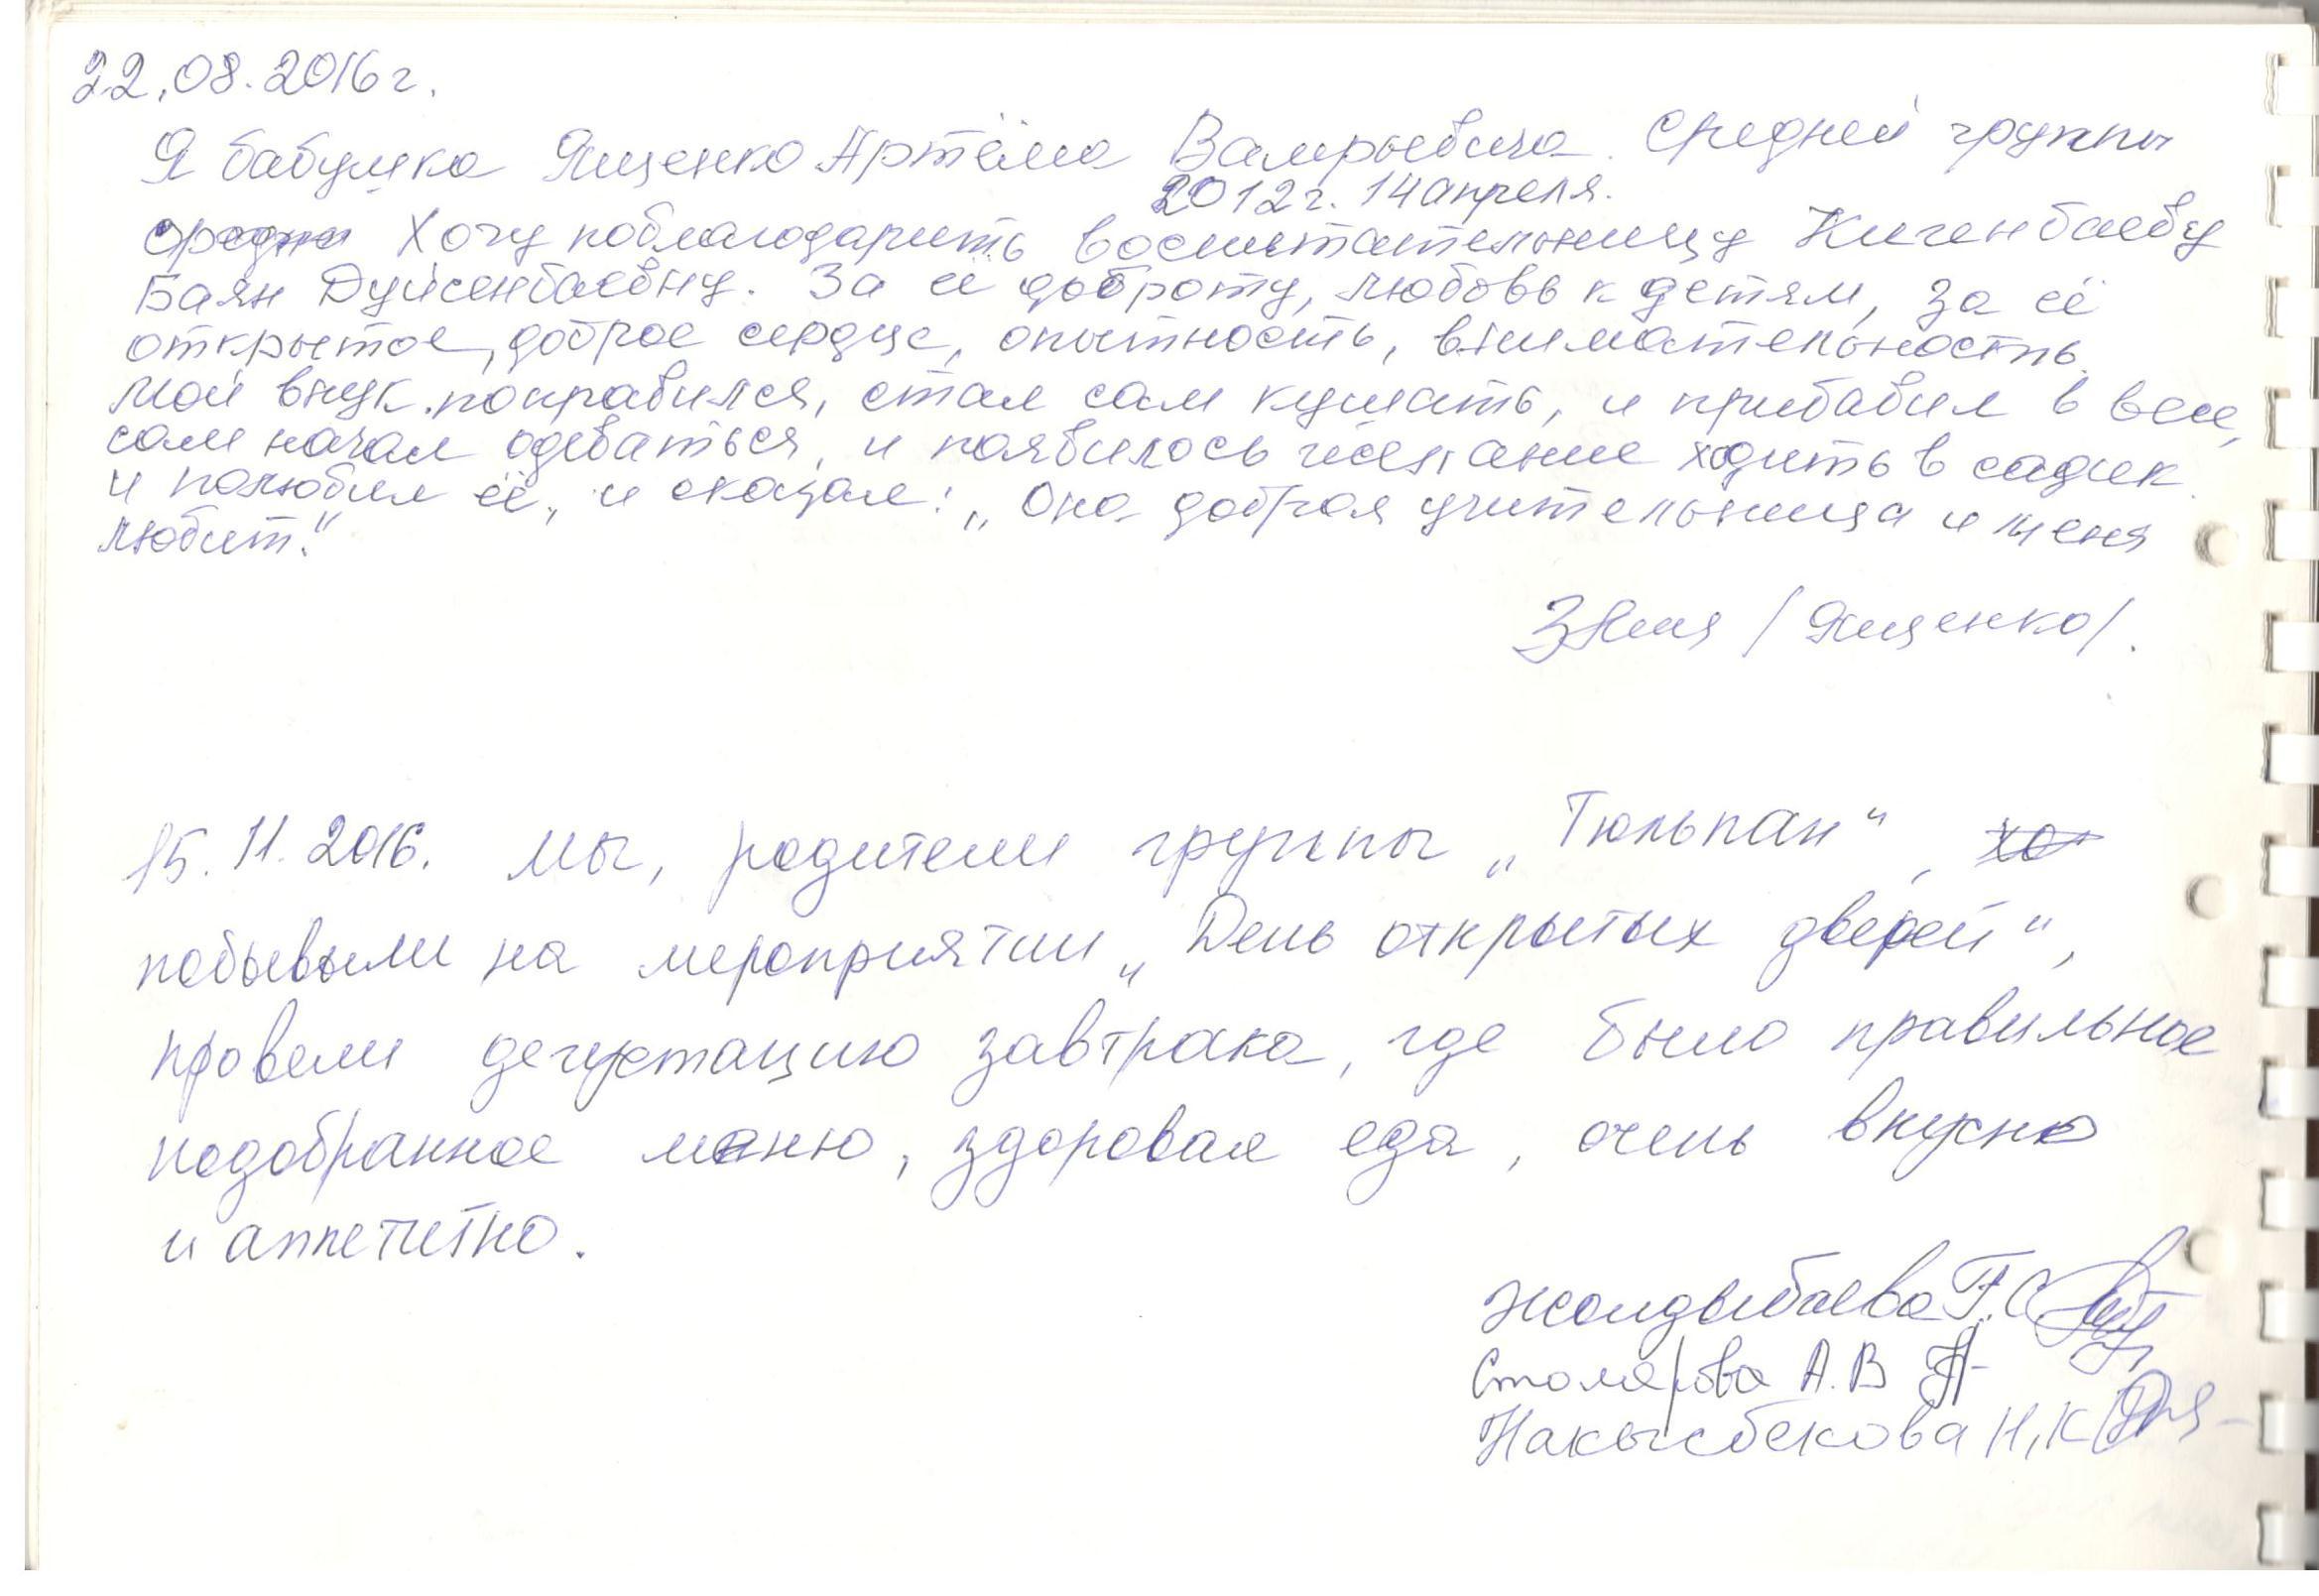 22.08.2016г.
Я бабушка Ященко Артёма Валерьевича. средней группы
2012г. 14 апреля.
средне Хочу поблагодарить воспитательницу Кигенбаеву
Баян Дуйсенбаевну. За её доброту, любовь к детям, за её
открытое, доброе сердце, опытность, внимательность.
мой внук поправился, стал сам кушать, и прибавил в весе,
сам начал одеваться, и появилось желание ходить в садик.
и полюбил её, и сказал: „Она добрая учительница и меня
любит."
/Ященко/.
15.11.2016. Мы, родители группы „Тюльпан", хо
побывыли на мероприятии „День открытых дверей",
провели дегустацию завтрака, где было правильное
подобранное меню, здоровая еда, очень вкусно
и аппетитно.
Жолдыбаева Г.С.
Столярова А.В
Накысбекова Н,К